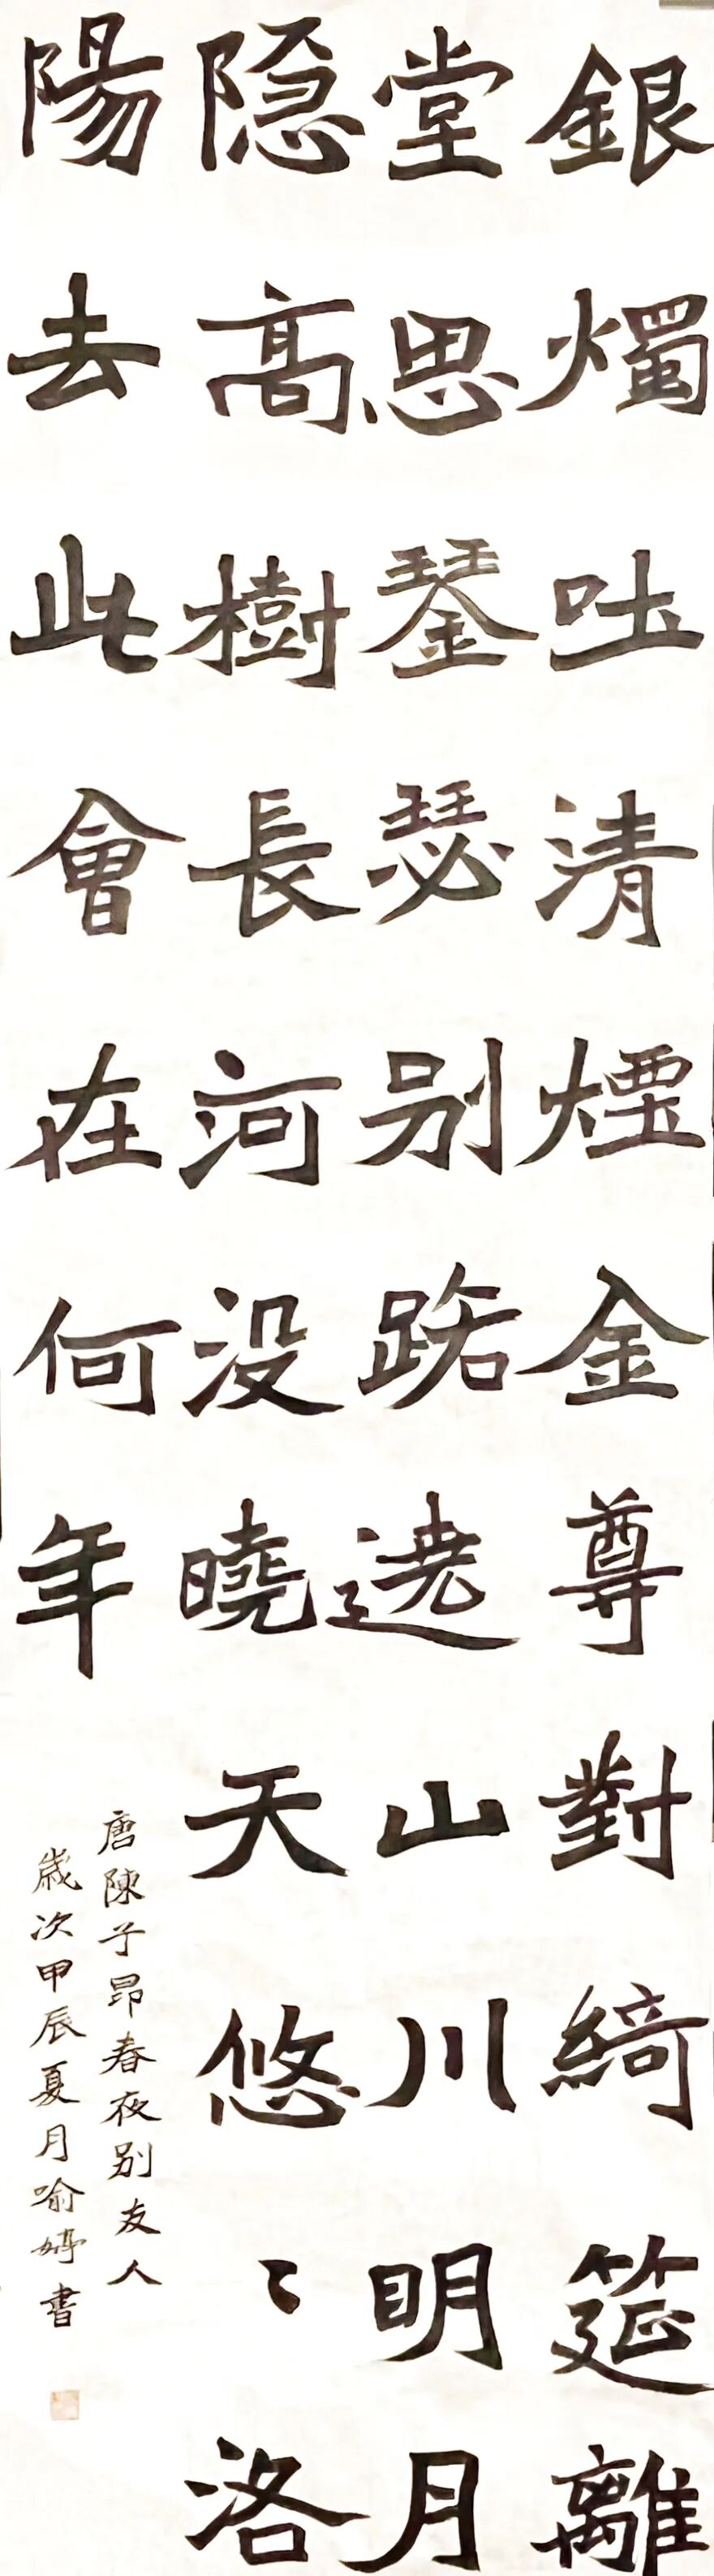 銀燭吐清煙金尊對綺筵離
堂思琴瑟别路遶山川明月
隐高樹長河没曉天悠〻洛
陽去此會在何年
唐陳子昂春夜别友人
歲次甲辰夏月喻婷書